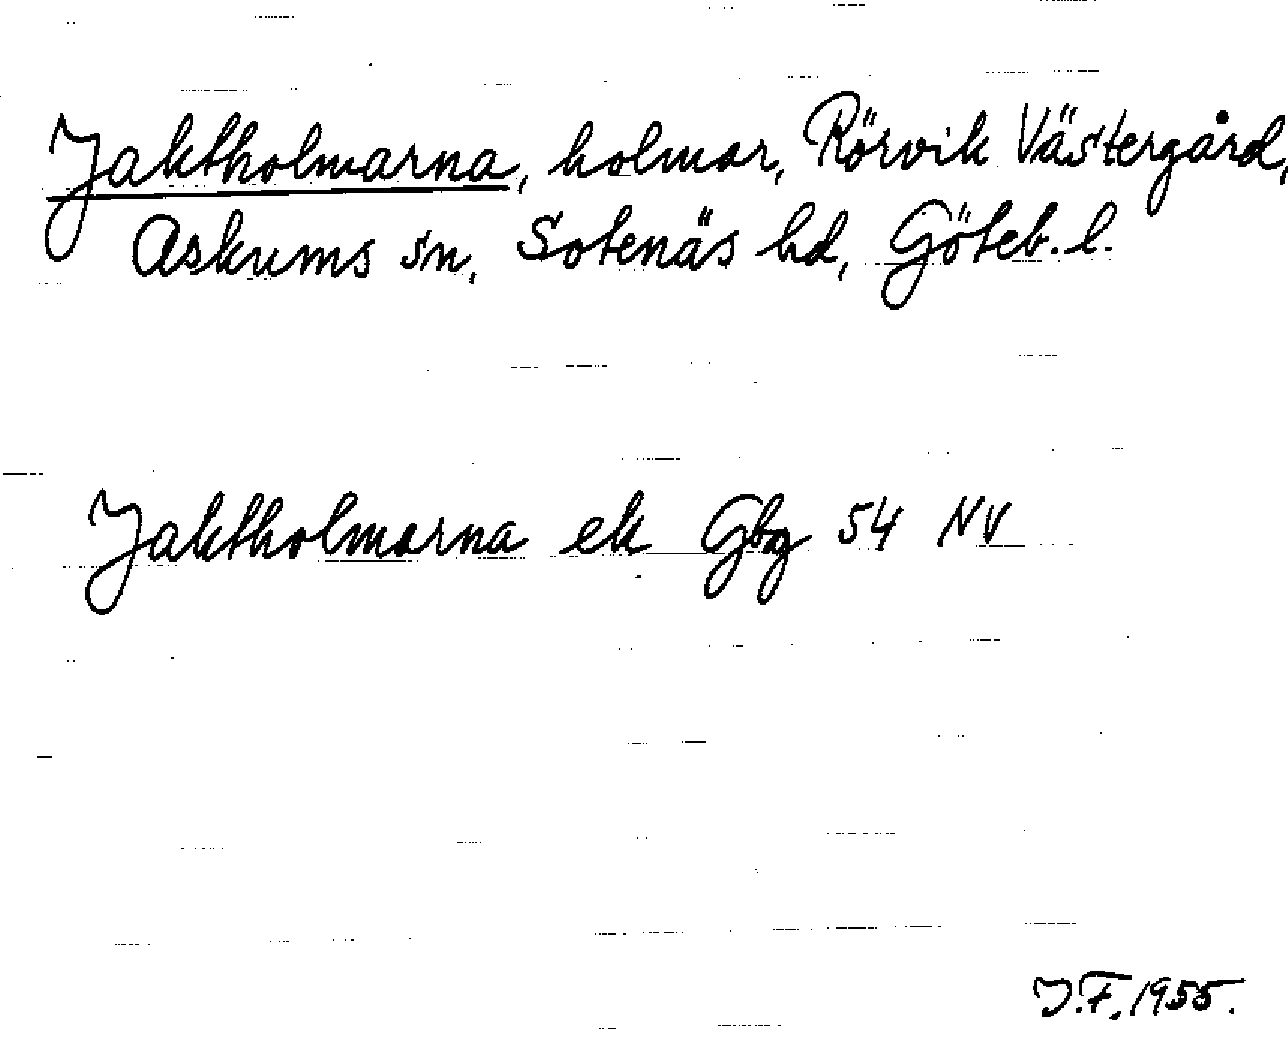 Jaktholmarna, holmar, Rörvik Västergård,
Askums sn, Sotenäs hd, Göteb. l.
Jaktholmarna ek Gbg 54 NV
J.F. 1955.